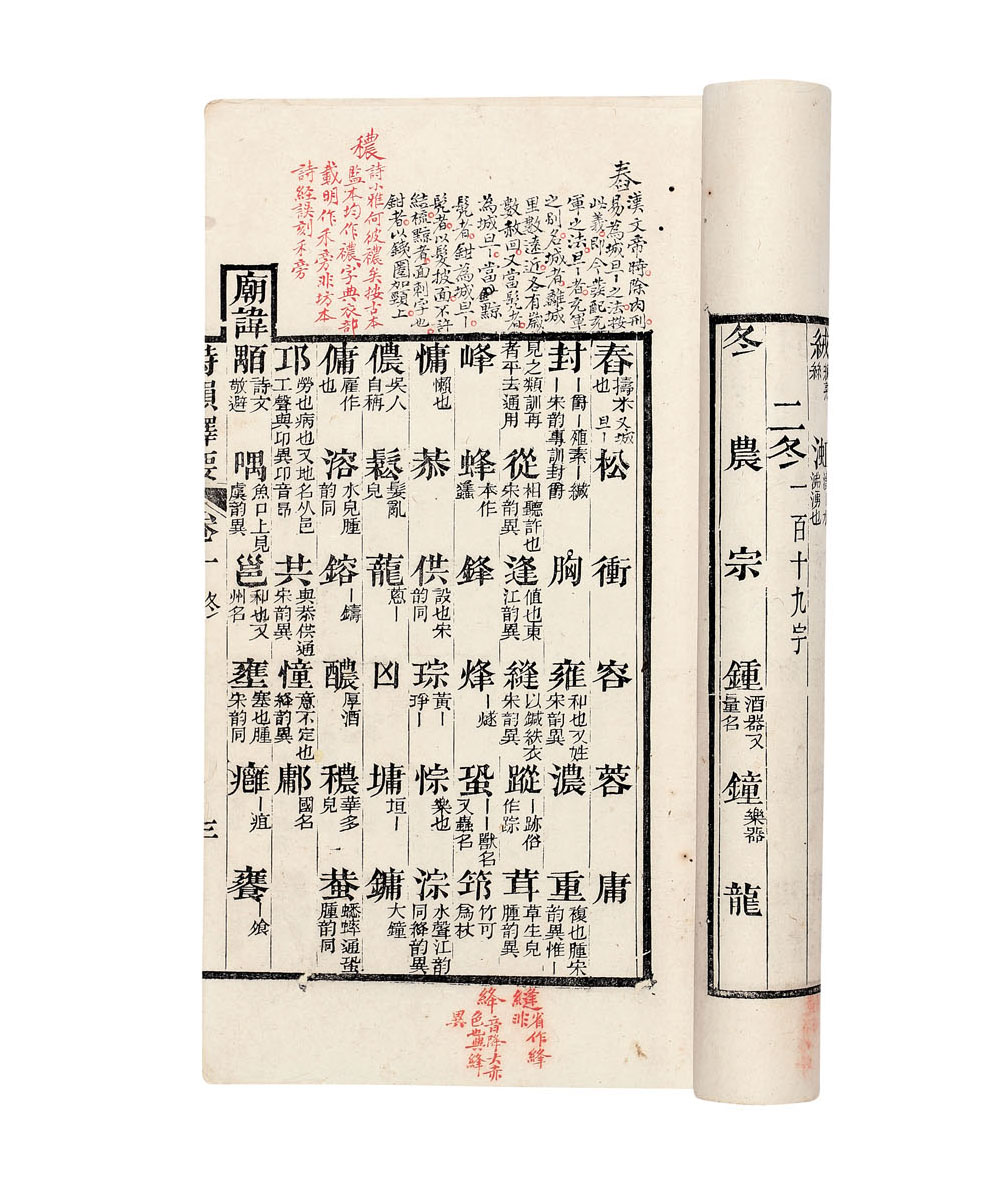 二冬一百十九字
冬 農 宗 鍾酒器又量名 鐘樂器 龍
舂擣米又城旦丨也 松 衝 容 蓉 庸
封丨爵丨殖素丨緘丨宋韵專訓封爵 胸 雍和也又姓宋韵異 濃 重複也腫宋韵異惟丨
見之類訓再者平去通用 從相聽許也宋韵異 逢值也東江韵異 縫以鍼紩衣宋韵異 蹤丨跡俗作踪 茸草生皃腫韵異
峰 蜂本作蠭 鋒 烽丨燧 蛩丨丨獸名又蟲名 筇竹可為杖
慵懶也 恭 供設也宋韵同 琮黃丨琤丨 悰樂也 淙水聲江韵同絳韵異
儂吳人自稱 鬆髮亂皃 龍蔥丨 凶 墉垣丨 鏞大鐘
傭雇作也 溶水皃腫韵同 鎔丨鑄 醲厚酒 穠華多皃 蛬蟋蟀通蛩腫韵同
邛勞也病也又地名从邑工聲與卬異卬音昂 共與恭供通宋韵異 憧意不定也絳韵異 鄘國名
廟諱
顒詩文敬避 喁魚口上見虞韵異 邕和也又州名 壅塞也腫宋韵同 癰丨疽 饔丨飧
詩韻釋要 卷一 冬 三
舂
漢文帝時除肉刑
易為城旦丨之法按
此義即今發配充
軍之法旦丨者充軍
之別名城者離城
里數遠近各有歲
數赦回又當髡者
為城旦丨當黥
髡者鉗為城旦丨
髡者以髮披面不許
結梳黥者面刺字也
鉗者以鐵圈加頸上
穠
詩小雅何彼襛矣按古本
監本均作襛字典衣部
載明作禾旁非坊本
詩經誤刻禾旁
縫省作縫
非
絳音降大赤
色與縫
異